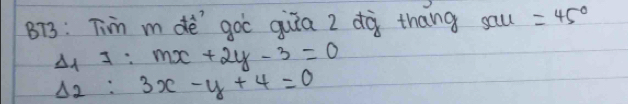 BT3: Tìm m để góc giữa 2 đg thẳng sau = 45°
Δ1 : mx + 2y - 3 = 0
Δ2 : 3x - y + 4 = 0